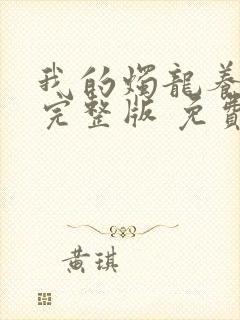 我的燭龍養
完整版 免費
黃琪